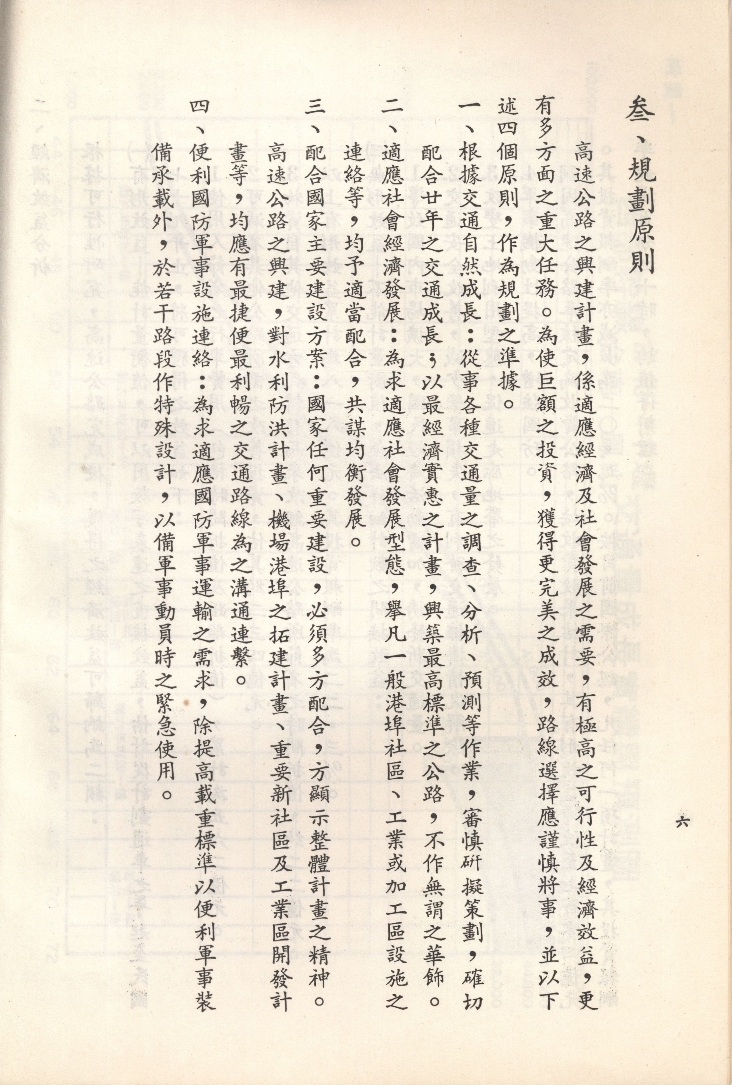 叁、規劃原則
高速公路之興建計畫，係適應經濟及社會發展之需要，有極高之可行性及經濟效益，更
有多方面之重大任務。為使巨額之投資，獲得更完美之成效，路線選擇應謹慎將事，並以下
述四個原則，作為規劃之準據。
一、根據交通自然成長：從事各種交通量之調查、分析、預測等作業，審慎研擬策劃，確切
配合廿年之交通成長；以最經濟實惠之計畫，興築最高標準之公路，不作無謂之華飾。
二、適應社會經濟發展：為求適應社會發展型態，舉凡一般港埠社區、工業或加工區設施之
連絡等，均予適當配合，共謀均衡發展。
三、配合國家主要建設方案：國家任何重要建設，必須多方配合，方顯示整體計畫之精神。
高速公路之興建，對水利防洪計畫、機場港埠之拓建計畫、重要新社區及工業區開發計
畫等，均應有最捷便最利暢之交通路線為之溝通連繫。
四、便利國防軍事設施連絡：為求適應國防軍事運輸之需求，除提高載重標準以便利軍事裝
備承載外，於若干路段作特殊設計，以備軍事動員時之緊急使用。
六